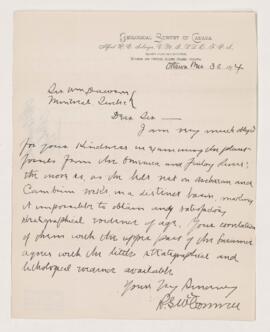 GEOLOGICAL SURVEY OF CANADA
Ottawa Mar 30 1894
Sir Wm Dawson
Montreal Quebec
Dear Sir
I am very much obliged
for your kindness in examining the plant
fossils from the Omineca and Finlay rivers
the more so, as the beds rest on Archaean and
Cambrian rocks in a distinct basin, making
it impossible to obtain any satisfactory
stratigraphical evidence of age. Your correlation
of them with the upper part of the
agrees with the little stratigraphical and
lithological evidence available
Yours Very Sincerely
R.G. McConnell